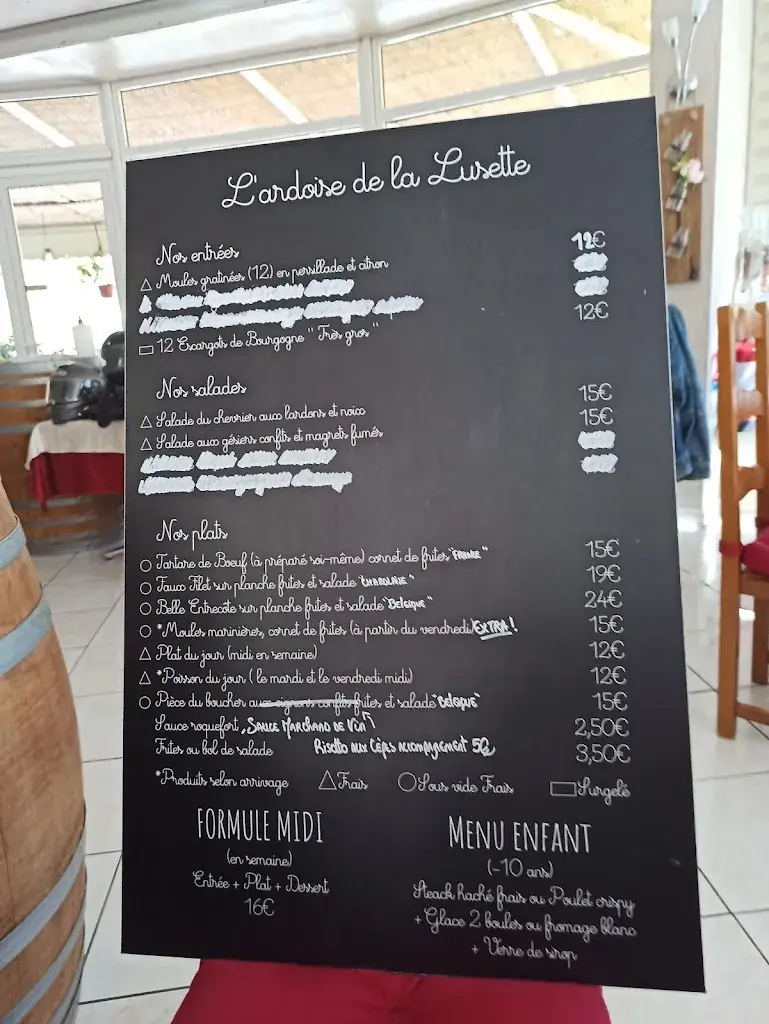 L'ardoise de la Lusette
Nos entrées
△ Moules gratinées (12) en persillade et citron 12€
▭ 12 Escargots de Bourgogne "Très gros" 12€
Nos salades
△ Salade du chevrier aux lardons et noix 15€
△ Salade aux gésiers confits et magrets fumés 15€
Nos plats
○ Tartare de Boeuf (à préparé soi-même) cornet de frites "FRANCE" 15€
○ Faux Filet sur planche frites et salade "CHAROLAISE" 19€
○ Belle Entrecote sur planche frites et salade "Belgique" 24€
○ *Moules marinières, cornet de frites (à partir du vendredi) EXTRA! 15€
△ Plat du jour (midi en semaine) 12€
△ *Poisson du jour ( le mardi et le vendredi midi) 12€
○ Pièce du boucher aux oignons confits frites et salade "Belgique" 15€
Sauce roquefort, SAUCE MARCHAND DE VIN 2,50€
Frites ou bol de salade Risotto aux Cèpes accompagnement 5€ 3,50€
*Produits selon arrivage △ Frais ○ Sous vide Frais ▭ Surgelé
FORMULE MIDI
(en semaine)
Entrée + Plat + Dessert
16€
MENU ENFANT
(-10 ans)
Steack haché frais ou Poulet crispy
+ Glace 2 boules ou fromage blanc
+ Verre de sirop